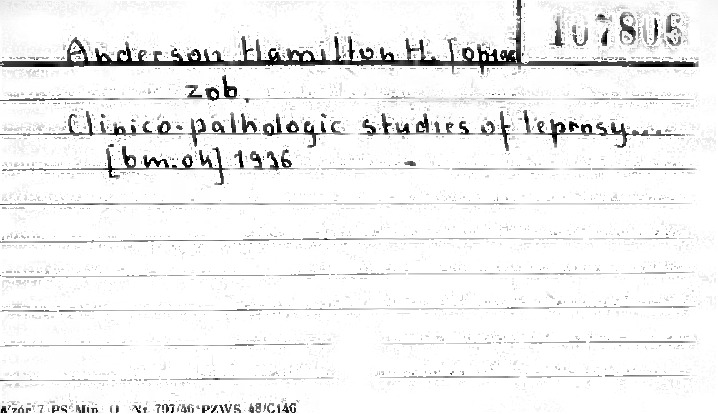 107805
Anderson Hamilton H. [oprac
zob.
Clinico-pathologic studies of leprosy....
[bm.oh] 1936
Wzór 7 PS Min. O. Nr. 797/46 PZWS 48/G140